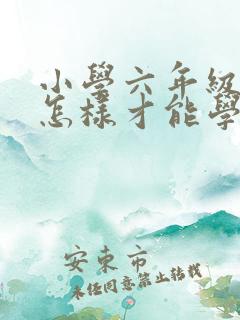 小學六年級
怎樣才能學
安東市
未经同意禁止转载